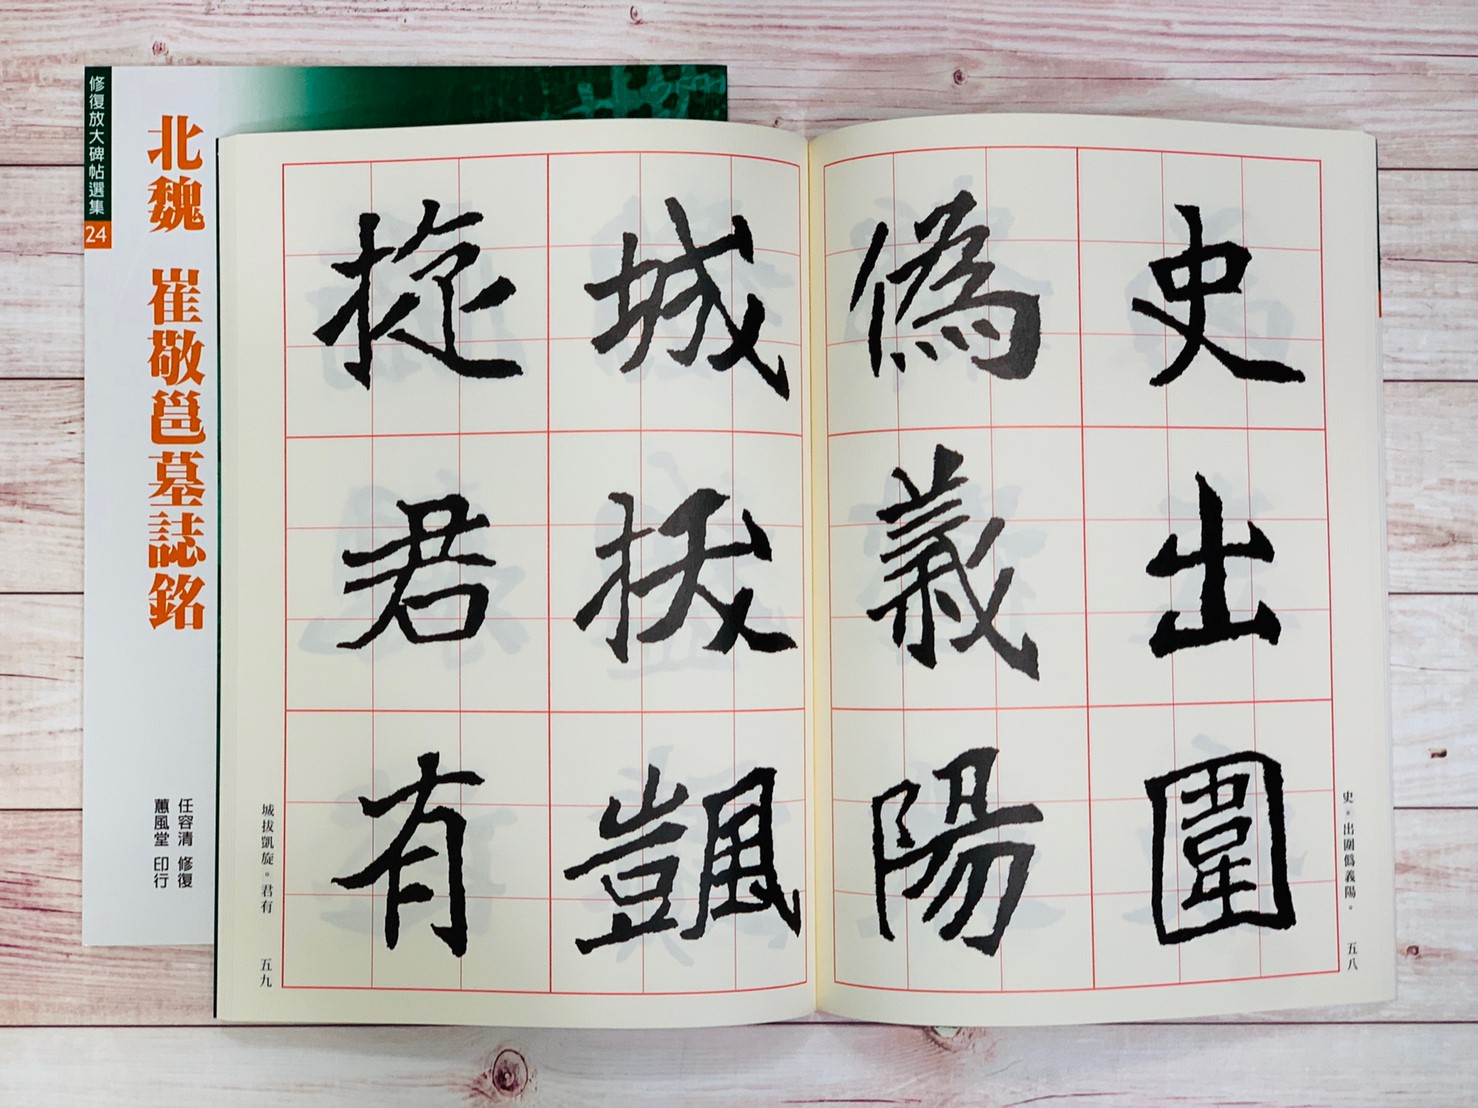 修復放大碑帖選集
24
北魏 崔敬邕墓誌銘
任容清 修復
蕙風堂 印行
史出圍
偽義陽
城拔颽
旋君有
史。出圍偽義陽。
五八
城拔凱旋。君有
五九